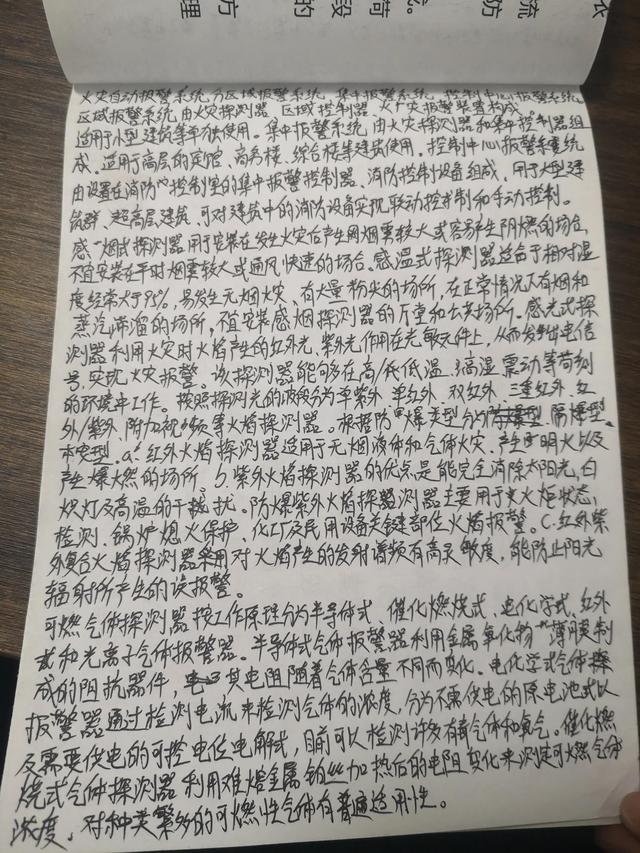 衣
流 防
荷 段 成。
的
方
理
火灾自动报警系统分区域报警系统、集中报警系统、控制中心报警系统。
区域报警系统由火灾探测器、区域控制器、火灾报警装置构成,
适用于小型建筑等单独使用。集中报警系统由火灾探测器和集中控制器组
成。适用于高层的宾馆、商务楼、综合楼等建筑使用。控制中心报警系统
由设置在消防控制室的集中报警控制器、消防控制设备组成,用于大型建
筑群、超高层建筑,可对建筑中的消防设备实现联动控制和手动控制。
感烟式探测器用于安装在发生火灾后产生烟雾较大或容易产生阴燃的场合,
不宜安装在平时烟雾较大或通风快速的场合。感温式探测器适合于相对湿
度经常大于95%,易发生无烟火灾、有大量粉尘的场所,在正常情况下有烟和
蒸汽滞溜的场所,不宜安装感烟探测器的厅堂和公共场所。感光式探
测器利用火灾时火焰产生的红外光、紫外光作用在光敏元件上,从而发出电信
号,实现火灾报警。该探测器能够在高/低低温、高湿、震动等苛刻
的环境中工作。按照探测光的波段分为单紫外、单红外、双红外、三重红外、红
外/紫外、附加视频等火焰探测器。根据防爆类型分为隔爆型、
本安型。a.红外火焰探测器适用于无烟液体和气体火灾、产生明火以及
产生爆燃的场所 b.紫外火焰探测器的优点是能完全消除太阳光,白
炽灯及高温的干扰。防爆紫外火焰探测器主要用于火炬状态,
检测、锅炉熄火保护、化工厂及民用设备关键部位火焰报警。c.红外紫
外复合火焰探测器采用对火焰产生的发射谱频有高灵敏度,能防止阳光
辐射所产生的误报警。
可燃气体探测器按工作原理分为半导体式、催化燃烧式、电化学式、红外
式和光离子气体报警器。半导体式气体报警器利用金属氧化物薄膜制
成的阻抗器件,其电阻随着气体含量不同而变化。电化学式气体探
报警器通过检测电流来检测气体的浓度,分为不需供电的原电池式以
及需要供电的可控电位电解式,目前可以检测许多有毒气体和氧气。催化燃
烧式气体探测器利用难熔金属铂丝加热后的电阻变化来测定可燃气体
浓度,对种类繁多的可燃性气体有普遍适用性。